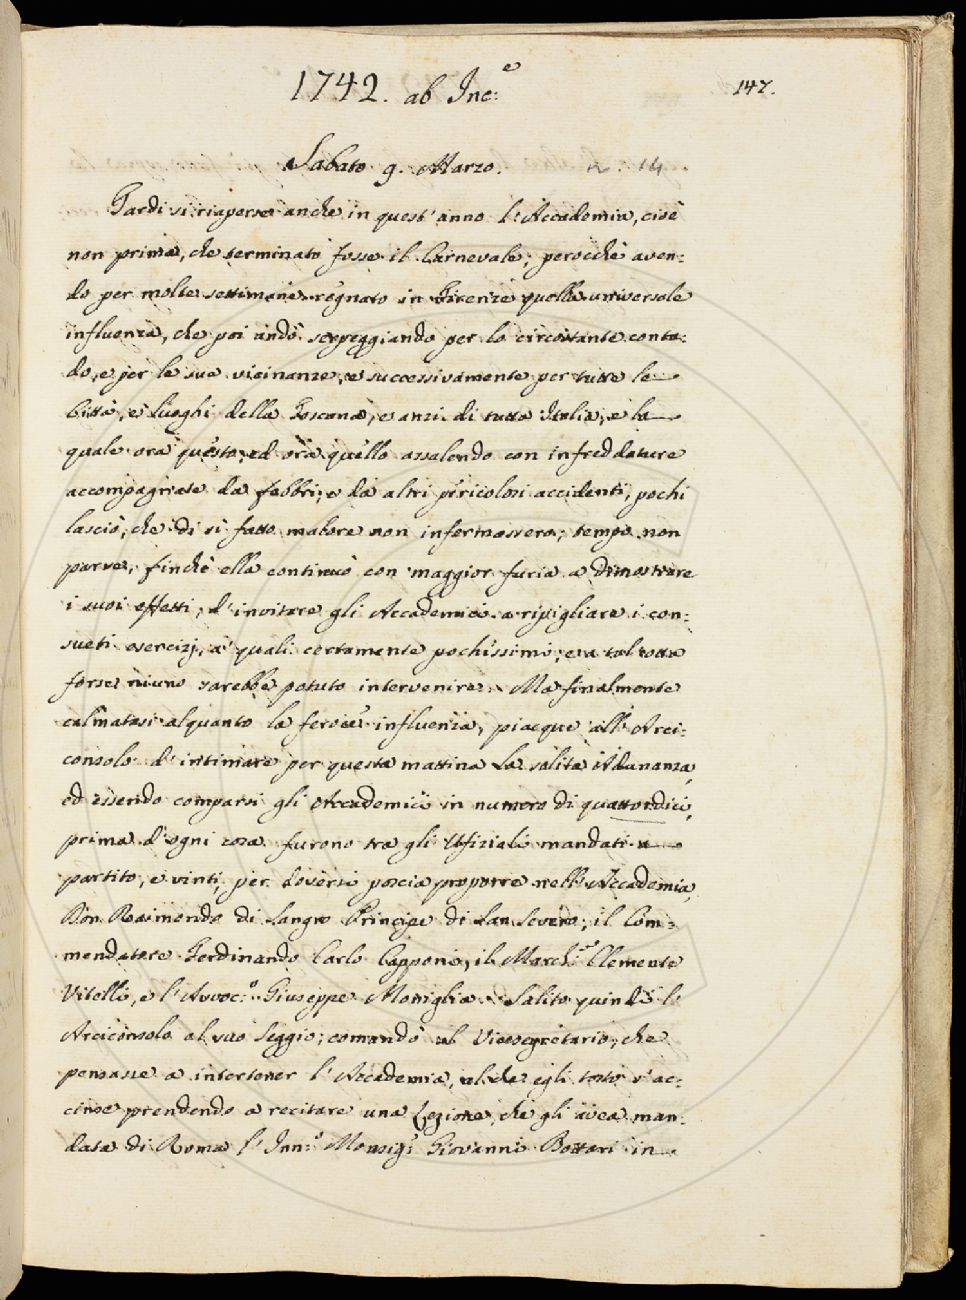 1742. ab Inc:e
147.
Sabato 9. Marzo.
N. 14
Tardi si riaperse anche in quest'anno l'Accademia, cioè
non prima, che terminato fosse il Carnevale; perocchè aven:
do per molte settimane regnato in Firenze quella universale
influenza, che poi andò serpeggiando per lo circostante conta:
do, e per le sue vicinanze, e successivamente per tutte le
Città, e Luoghi della Toscana, e anzi di tutta Italia, e la
quale ora questo, ed ora quello assalendo con infreddature
accompagnate da febbri, e da altri pericolosi accidenti, pochi
lasciò, che di sì fatto malore non infermassero; tempo non
parve, finchè ella continuò con maggior furia a dimostrare
i suoi effetti, d'invitare gli Accademici a ripigliare i con:
sueti esercizj, a' quali certamente pochissimi, e a tal'otta
forse niuno sarebbe potuto intervenire. Ma finalmente
calmatasi alquanto la feroce influenza, piacque all'Arci:
consolo d'intimare per questa mattina la solita Adunanza,
ed essendo comparsi gli Accademici in numero di quattordici,
prima d'ogni cosa furono tra gli Ufiziali mandati a
partito, e vinti, per doversi poscia proporre nell'Accademia,
Don Raimondo di Sangro Principe di San Severo, il Com:
mendatore Ferdinando Carlo Capponi, il March:e Clemente
Vitelli, e l'Avvoc:o Giuseppe Moniglia. Salito quindi l'
Arciconsolo al suo Seggio, comandò al Vicesegretario, che
pensasse a intertener l'Accademia, al che egli tosto s'ac:
cinse prendendo a recitare una Lezione, che gli avea man:
data di Roma l'Inn:o Monsig:r Giovanni Bottari in